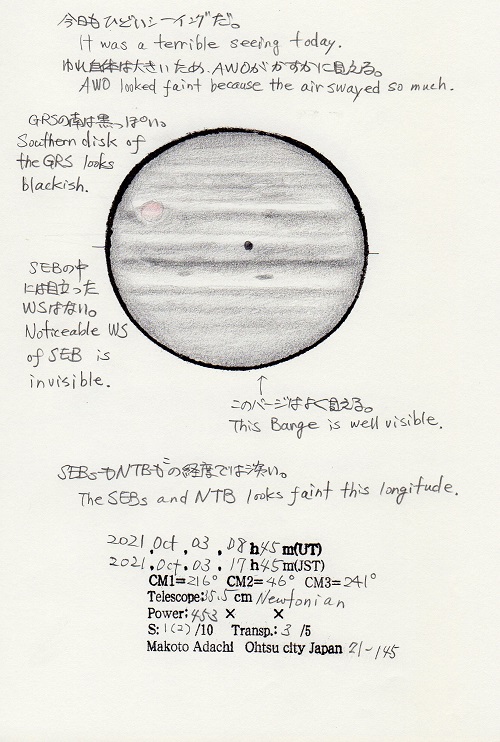 今日もひどいシーイングだ。
It was a terrible seeing today.
ゆれ自体は大きいため、AWOがかすかに見える。
AWO looked faint because the air swayed so much.
GRSの南は黒っぽい。
Southern disk of
the GRS looks
blackish.
SEBの中
には目立った
WSはない。
Noticeable WS
of SEB is
invisible.
↑
このバージはよく見える。
This Barge is well visible.
SEBsもNTBもこの経度では淡い。
The SEBs and NTB looks faint this longitude.
2021.Oct.03.08h45m(UT)
2021.Oct.03.17h45m(JST)
CM1=216° CM2=46° CM3=241°
Telescope:35.5cm Newtonian
Power:453× ×
S:1(2)/10 Transp.:3/5
Makoto Adachi Ohtsu city Japan 21-145